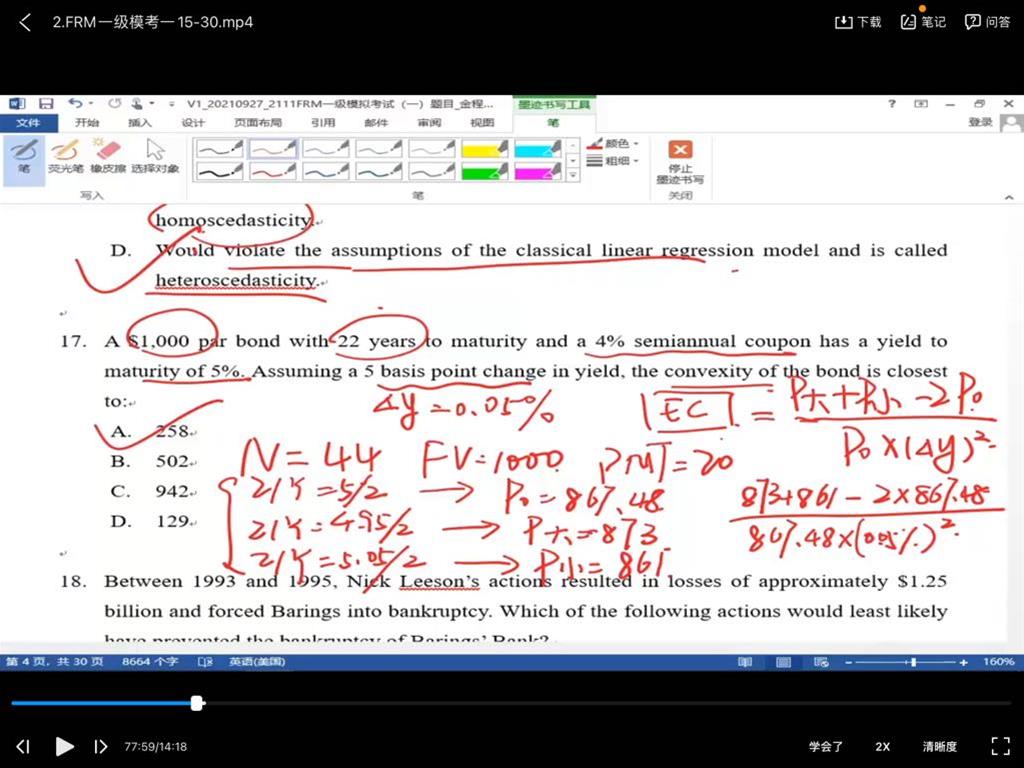 2.FRM一级模考一 15-30.mp4
下载 笔记 问答
V1_20210927_2111FRM一级模拟考试（一）题目_金程... 墨迹书写工具
文件 开始 插入 设计 页面布局 引用 邮件 审阅 视图 笔 登录
笔 荧光笔 橡皮擦 选择对象 颜色 粗细 停止墨迹书写
写入 笔 关闭
homoscedasticity.
D. Would violate the assumptions of the classical linear regression model and is called
heteroscedasticity.
17. A $1,000 par bond with 22 years to maturity and a 4% semiannual coupon has a yield to
maturity of 5%. Assuming a 5 basis point change in yield, the convexity of the bond is closest
to:
ΔY=0.05%
EC = P大+P小-2P0
P0×(Δy)²
A. 258
B. 502
C. 942
D. 129
N=44 FV=1000 PMT=20
I/Y=5/2 → P0=867.48
I/Y=4.95/2 → P大=873
I/Y=5.05/2 → P小=861
873+861-2×867.48
867.48×(0.05%)²
18. Between 1993 and 1995, Nick Leeson's actions resulted in losses of approximately $1.25
billion and forced Barings into bankruptcy. Which of the following actions would least likely
have prevented the bankruptcy of Barings' Bank?
第 4 页，共 30 页 8664 个字 英语(美国) 160%
77:59/14:18 学会了 2X 清晰度